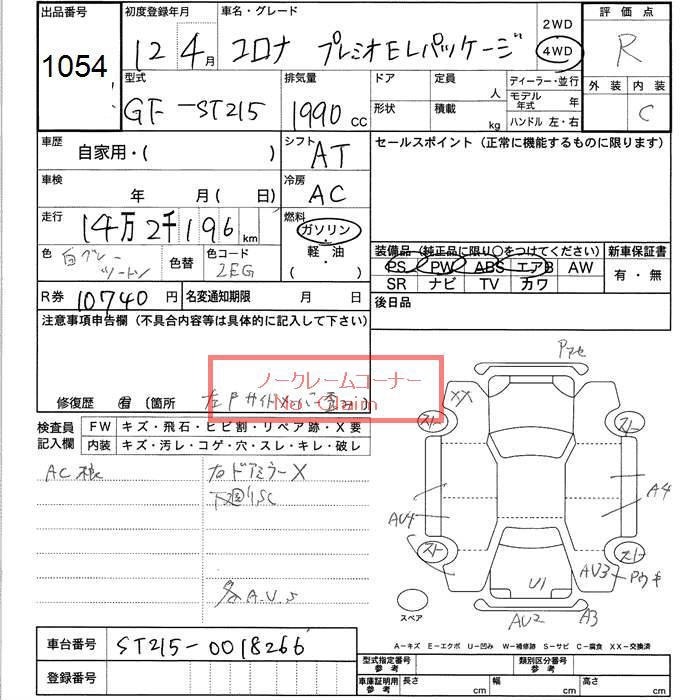 出品番号 初度登録年月 車名・グレード 2WD 評価点
1054 12年4月 コロナ プレミオELパッケージ 4WD R
型式 排気量 ドア 定員 人 ディーラー・並行 外装 内装
GF-ST215 1990 CC 形状 積載 kg モデル年式 年 C
ハンドル 左・右
車歴 自家用・( ) シフト AT セールスポイント (正常に機能するものに限ります)
車検 年 月 ( 日) 冷房 AC
走行 14万2千196 km 燃料 ガソリン・軽油 ( )
色 白グレーツートン 色替 色コード 2EG
装備品 (純正品に限り○をつけてください) 新車保証書
PS PW ABS エアB AW 有・無
SR ナビ TV カワ
R券 10740 円 名変通知期限 月 日 後日品
注意事項申告欄 (不具合内容等は具体的に記入して下さい)
ノークレームコーナー
No Claim
修復歴 有 (箇所
検査員記入欄 FW キズ・飛石・ヒビ割・リペア跡・X要
内装 キズ・汚レ・コゲ・穴・スレ・キレ・破レ
右ドアミラーX
下廻りSC
各A.U.S
XX
AU4
A4
AU3
U1
AU2 A3
スペア
A-キズ E-エクボ U-凹み W-補修跡 S-サビ C-腐食 XX-交換済
車台番号 ST215-0018266
登録番号
型式指定番号 参考 類別区分番号 参考
車庫証明用 参考 長さ cm 幅 cm 高さ cm